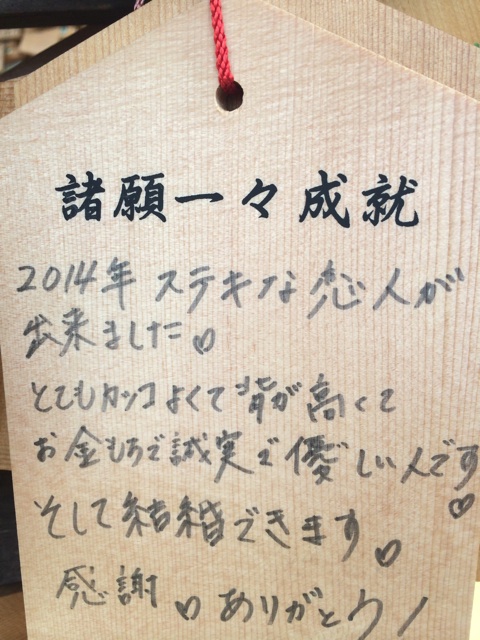 諸願一々成就
2014年 ステキな恋人が
出来ました♡
とてもカッコよくて背が高くて
お金もちで誠実で優しい人です♡
そして結婚できます♡
感謝♡ありがとウ！